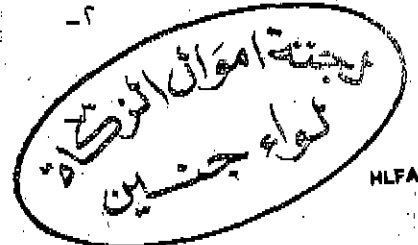 ٢-
لجنة اموال الزكاة
لواء جنين
HLFA